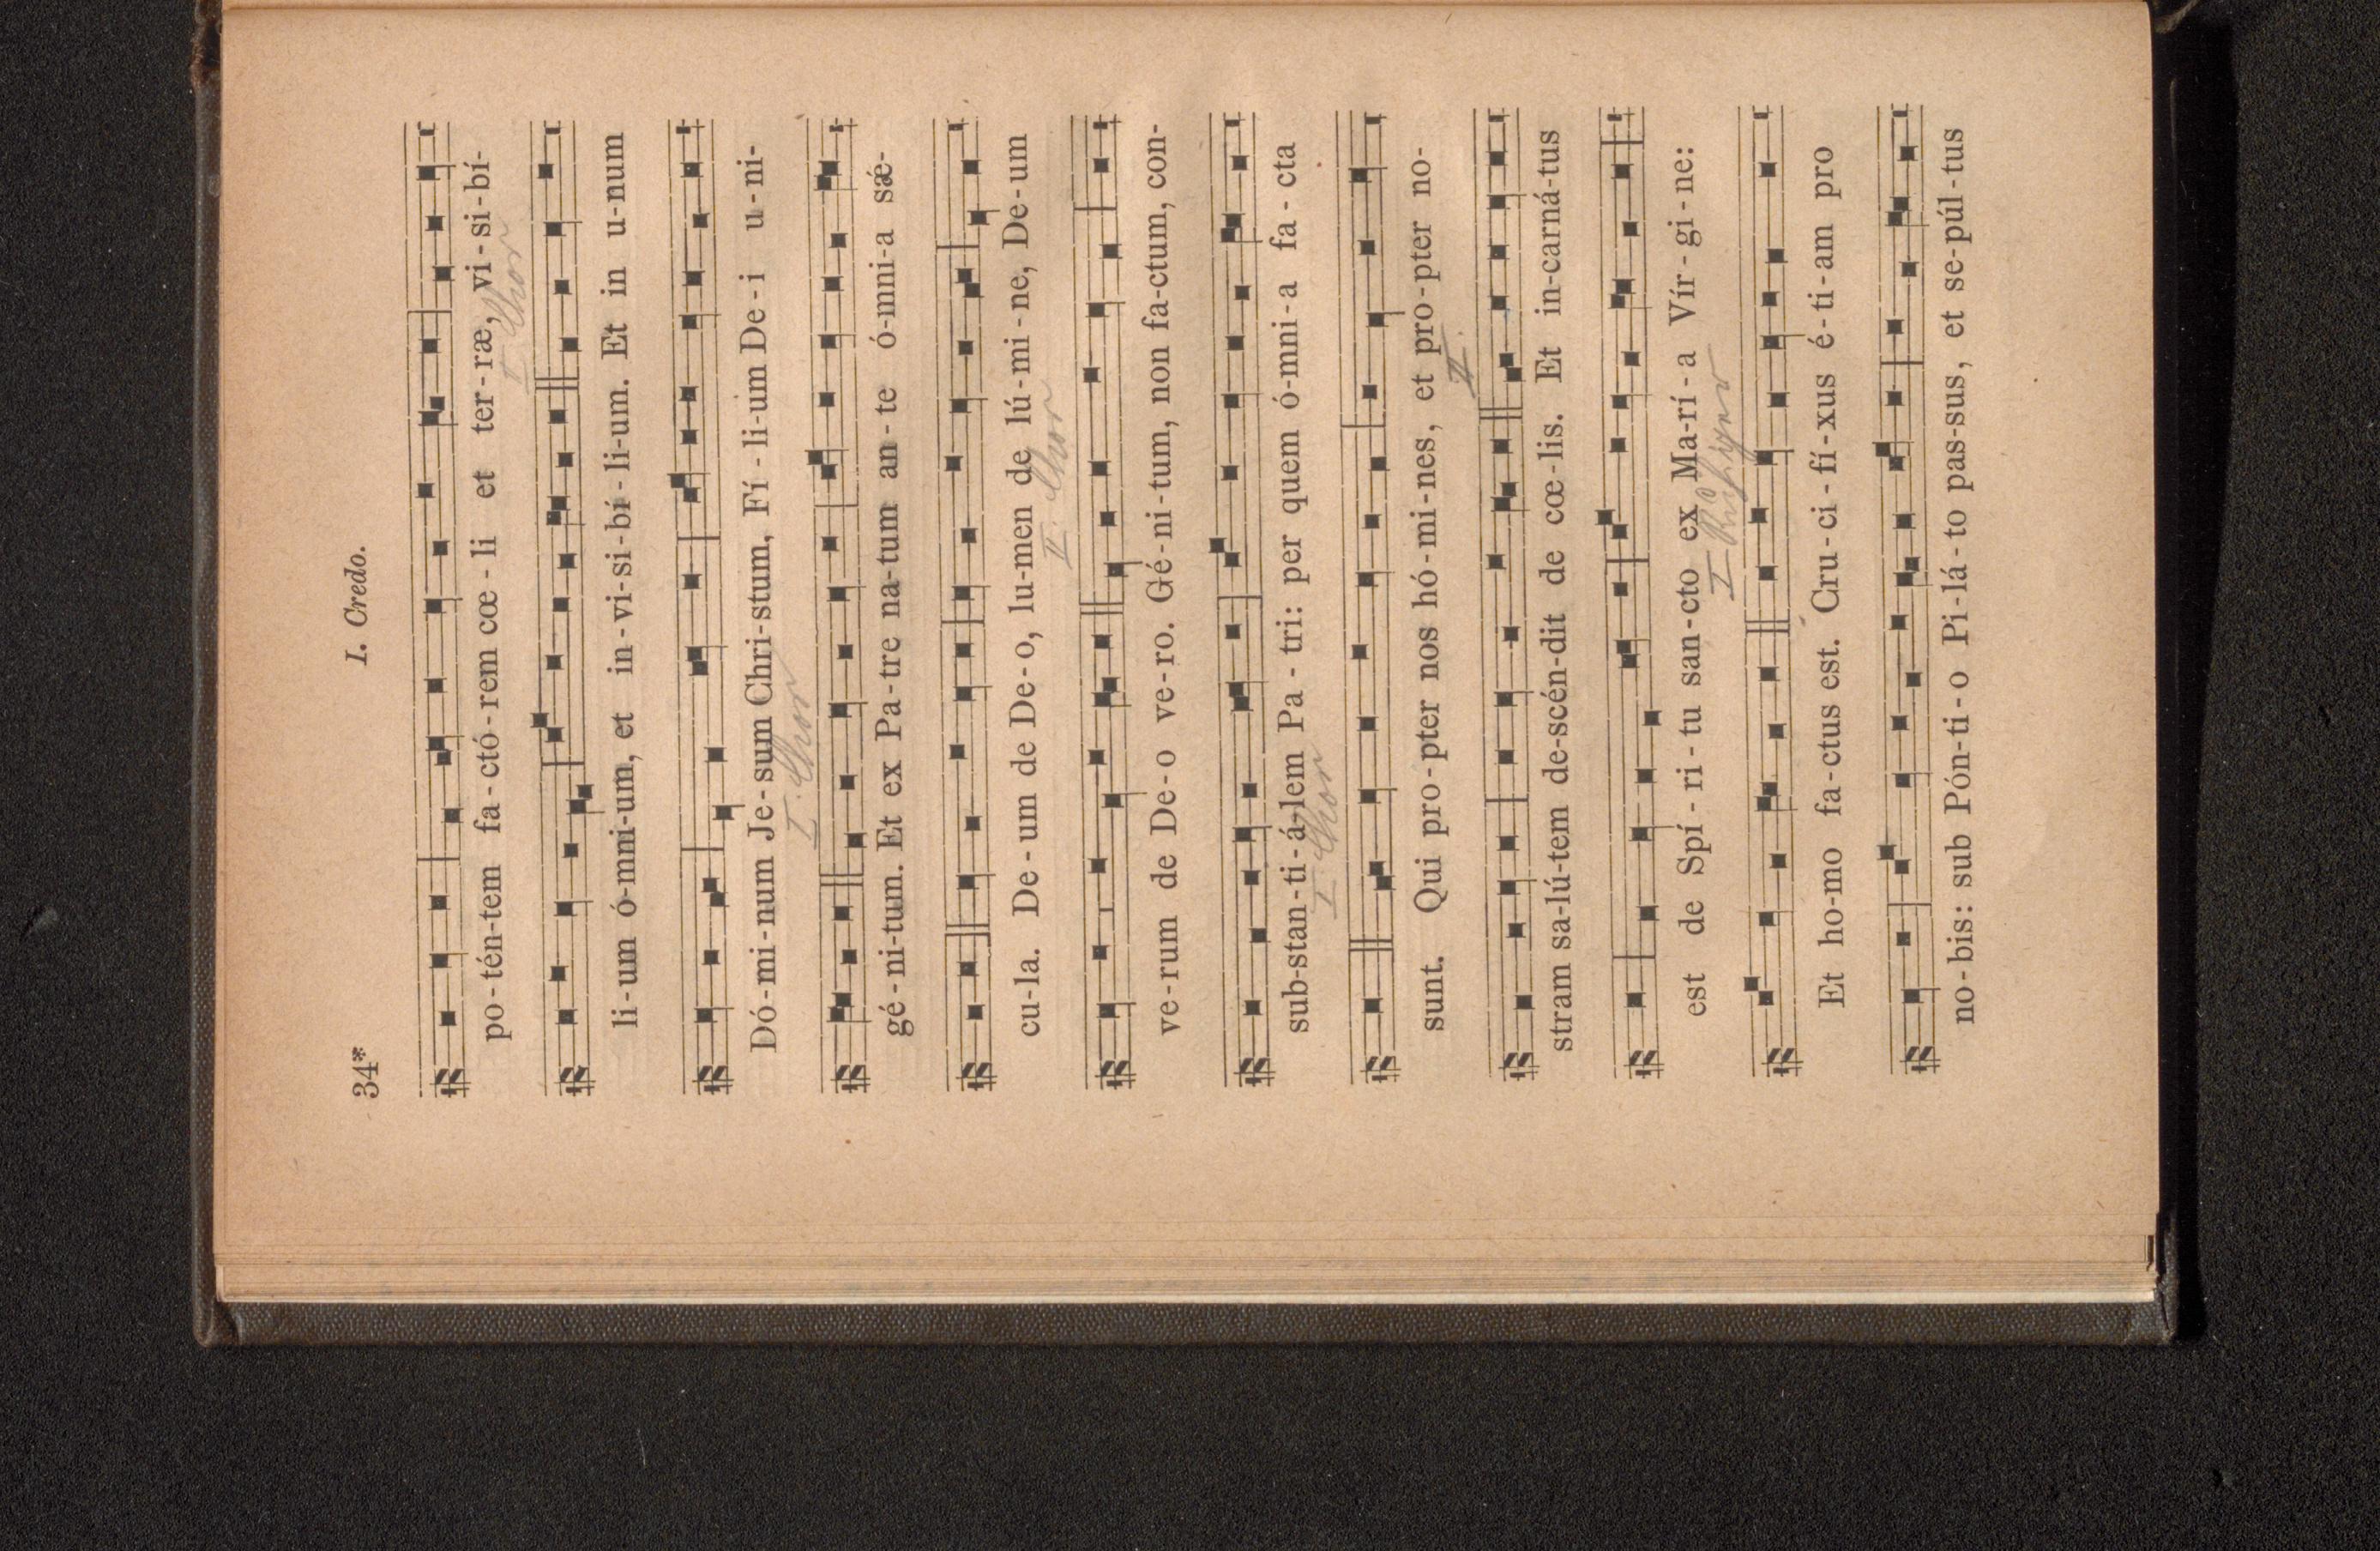 34*
I. Credo.
po-tén-tem fa-ctó-rem cœ-li et ter-ræ, vi-si-bí-
I Chor
li-um ó-mni-um, et in-vi-si-bí-li-um. Et in u-num
Dó-mi-num Je-sum Chri-stum, Fí-li-um De-i u-ni-
I. Chor
gé-ni-tum. Et ex Pa-tre na-tum an-te ó-mni-a sæ-
cu-la. De-um de De-o, lu-men de lú-mi-ne, De-um
II. Chor
ve-rum de De-o ve-ro. Gé-ni-tum, non fa-ctum, con-
sub-stan-ti-á-lem Pa-tri: per quem ó-mni-a fa-cta
I. Chor
sunt. Qui pro-pter nos hó-mi-nes, et pro-pter no-
II.
stram sa-lú-tem de-scén-dit de cœ-lis. Et in-carná-tus
est de Spí-ri-tu san-cto ex Ma-rí-a Vír-gi-ne:
I
Et ho-mo fa-ctus est. Cru-ci-fí-xus é-ti-am pro
no-bis: sub Pón-ti-o Pi-lá-to pas-sus, et se-púl-tus